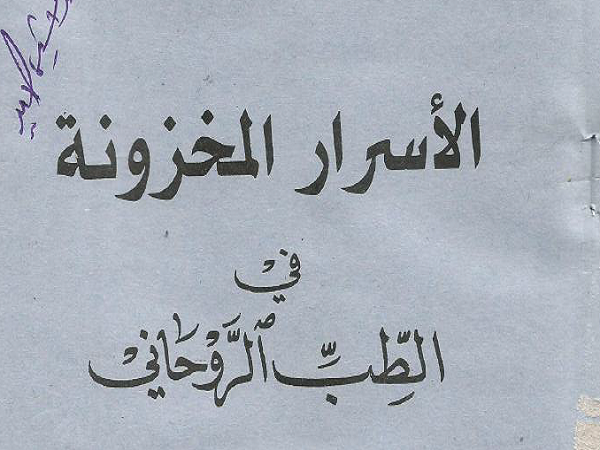 الأسرار المخزونة
في
الطِّبِّ ٱلرَّوْحَاني